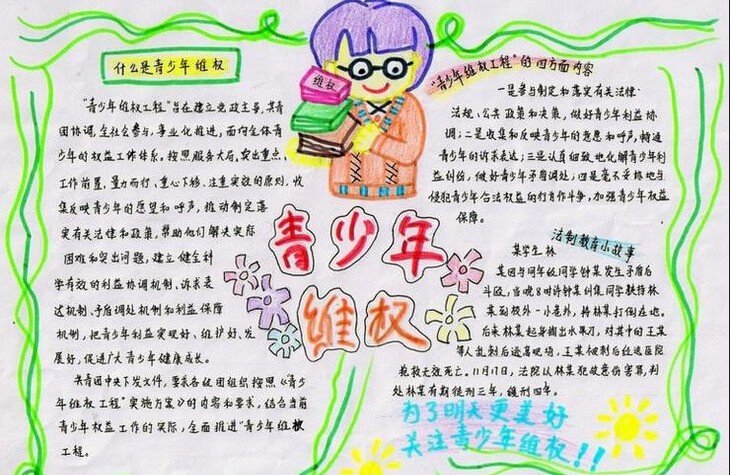 什么是青少年维权
"青少年维权工程"旨在建立党政主导,共青
团协调,全社会参与,事业化推进,面向全体青
少年的权益工作体系。按照服务大局、突出重点、
工作前置、量力而行、重心下移、注重实效的原则,收
集反映青少年的愿望和呼声,推动制定落
实有关法律和政策,帮助他们解决实际
困难和突出问题,建立健全科
学有效的利益协调机制、诉求表
达机制、矛盾调处机制和利益保障
机制,把青少年利益实现好、维护好、发
展好,促进广大青少年健康成长。
共青团中央下发文件,要求各级团组织按照《"青少
年维权工程"实施方案》的内容和要求,结合当前
青少年权益工作的实际,全面推进"青少年维权
工程。
维权
青少年
维权
"青少年维权工程"的四方面内容
一是参与制定和落实有关法律
法规、公共政策和决策,做好青少年利益协
调;二是收集和反映青少年的意愿和呼声,畅通
青少年的诉求表达;三是认真细致地化解青少年利
益纠纷,做好青少年矛盾调处;四是毫不妥协地与
侵犯青少年合法权益的行为作斗争,加强青少年权益
保障。
法制教育小故事
某学生林
某因与同年级同学钟某发生矛盾后
斗殴,当晚8时许钟某纠集同学挟持林
某到校外一小巷外,将林某打倒在地。
后来林某起身掏出水果刀,对其中的王某
等人乱刺后逃离现场,王某被刺后经送医院
抢救无效死亡。11月17日,法院以林某犯故意伤害罪,判
处林某有期徒刑三年,缓刑四年。
为了明天更美好
关注青少年维权!!